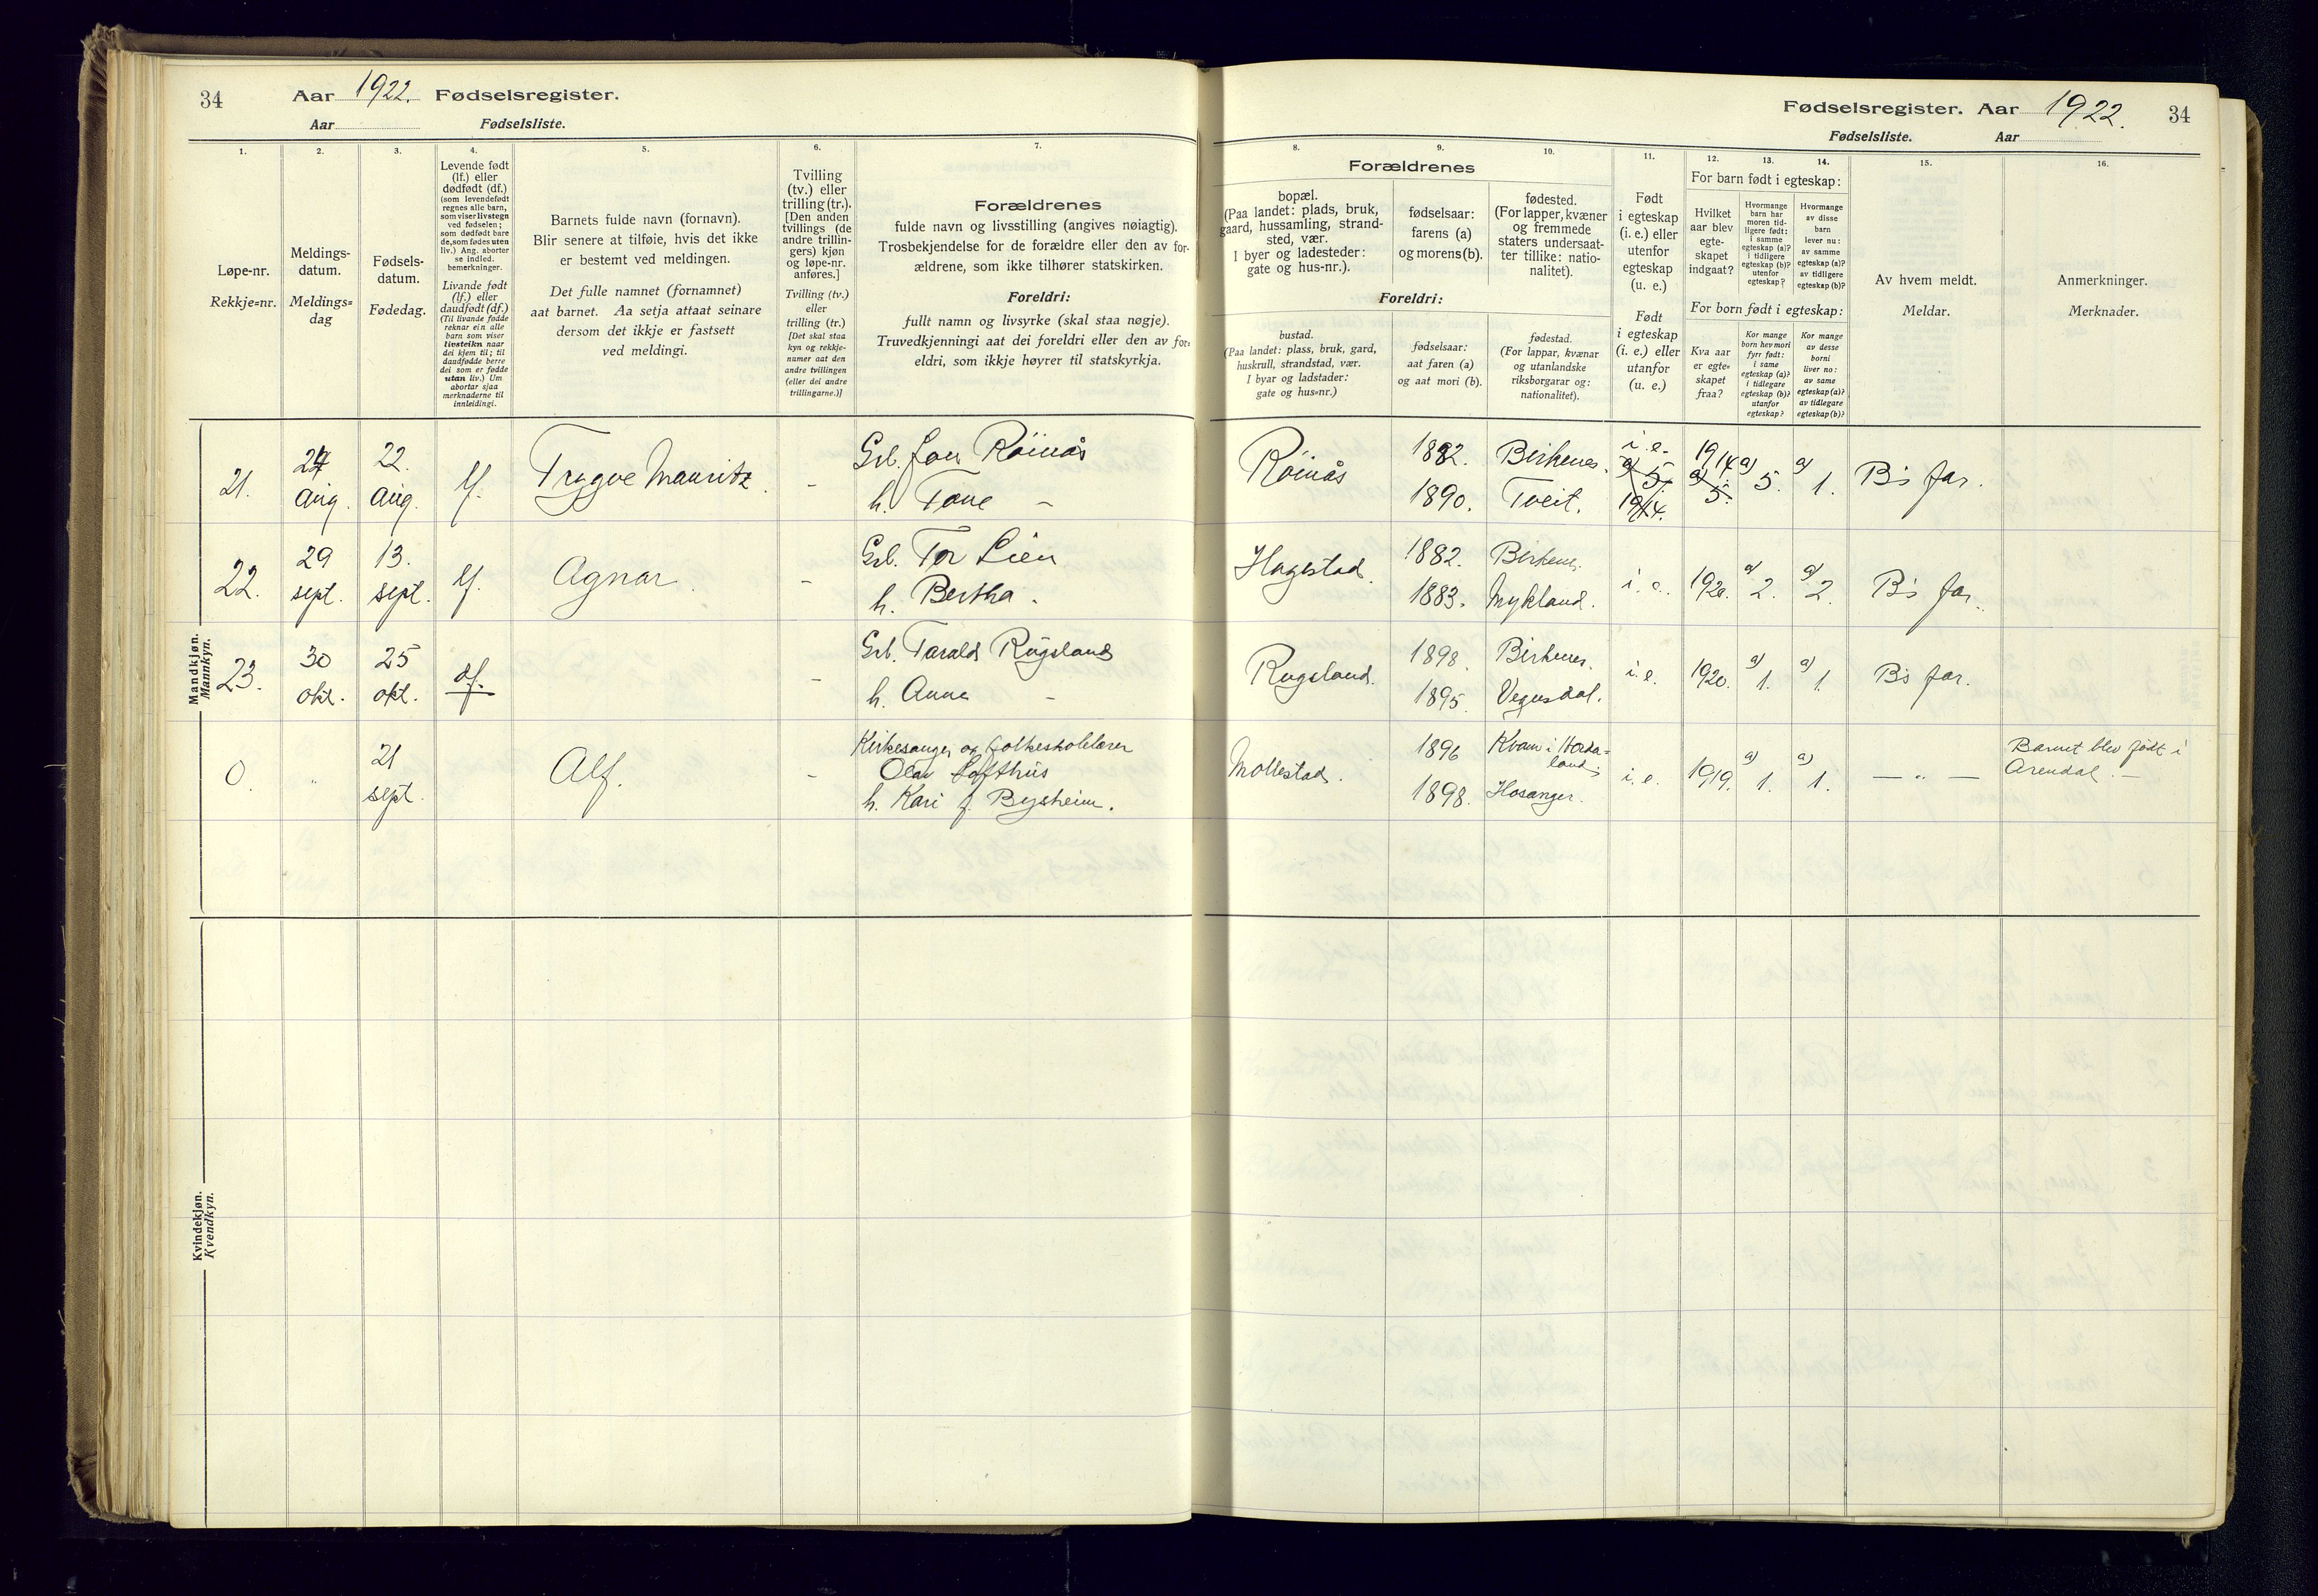 34 Aar 1922. Fødselsregister.
Aar Fødselsliste.
1.
Løpe-nr.
Rekkje=nr.
2.
Meldings-
datum.
Meldings=
dag
3.
Fødsels-
datum.
Fødedag.
4.
Levende født
(lf.) eller
dødfødt (df.)
(som levendefødt
regnes alle barn,
som viser livstegn
ved fødselen;
som dødfødt bare
de, som fødes uten
liv.) Ang. aborter
se indled.
bemerkninger.
Livande født
(lf.) eller
daudfødt (df.)
(Til livande fødde
reknar ein alle
barn som viser
livsteikn naar
dei kjem til; til
daudfødde berre
dei som er fødde
utan liv.) Um
abortar sjaa
merknaderne til
innleidingi.
5.
Barnets fulde navn (fornavn).
Blir senere at tilføie, hvis det ikke
er bestemt ved meldingen.
Det fulle namnet (fornamnet)
aat barnet. Aa setja attaat seinare
dersom det ikkje er fastsett
ved meldingi.
6.
Tvilling
(tv.) eller
trilling (tr.).
[Den anden
tvillings (de
andre trillin-
gers) kjøn
og løpe-nr.
anføres.]
Tvilling (tv.)
eller
trilling (tr.)
[Det skal staa
kyn og rekkje-
numer aat den
andre tvillingen
(eller dei andre
trillingarne.)]
7.
Forældrenes
fulde navn og livsstilling (angives nøiagtig).
Trosbekjendelse for de forældre eller den av for-
ældrene, som ikke tilhører statskirken.
Foreldri:
fullt namn og livsyrke (skal staa nøgje).
Truvedkjenningi aat dei foreldri eller den av for=
eldri, som ikkje høyrer til statskyrkja.
Mandkjøn.
Mannkyn.
21. 24 Aug. 22. Aug. lf. Trygve Mauritz. - Grb. Jon Röinås
h. Tone -
22. 29 sept. 13. sept. lf. Agnar. - Grb. Tor Lien
h. Bertha -
23. 30 okt. 25 okt. df. - Grb. Tarald Rugsland
h. Anna -
0. " 21 sept. Alf. - Kirkesanger og folkeskolelærer
Olav Lofthus
h. Kari f. Bysheim.
Kvindekjøn.
Kvendkyn.
Fødselsregister. Aar 1922. 34
Fødselsliste. Aar
8.
Forældrenes
bopæl.
(Paa landet: plads, bruk,
gaard, hussamling, strand-
sted, vær.
I byer og ladesteder:
gate og hus-nr.).
Foreldri:
bustad.
(Paa landet: plass, bruk, gard,
huskrull, strandstad, vær.
I byar og ladstader:
gate og hus=nr.)
9.
fødselsaar:
farens (a)
og morens (b).
fødselsaar:
aat faren (a)
og aat mori (b).
10.
fødested.
(For lapper, kvæner
og fremmede
staters undersaat-
ter tillike: natio-
nalitet).
fødestad.
(For lappar, kvænar
og utanlandske
riksborgarar og:
nationalitet).
11.
Født
i egteskap
(i. e.) eller
utenfor
egteskap
(u. e.)
Født
i egteskap
(i. e.) eller
utanfor
(u. e.)
12. 13. 14.
For barn født i egteskap:
Hvilket
aar blev
egte-
skapet
indgaat?
Hvormange
barn har
moren tid-
ligere født:
i samme
egteskap (a)?
i tidligere
egteskap (b)?
utenfor
egteskap?
Hvormange
av disse
barn
lever nu:
av samme
egteskap (a)?
av tidligere
egteskap (b)?
For born født i egteskap:
Kva aar
er egte=
skapet
fraa?
Kor mange
born hev mori
fyrr født:
i same
egteskap (a)?
i tidlegare
egteskap (b)?
utanfor
egteskap?
Kor mange
av desse
borni
liver no:
av same
egteskap (a)?
av tidlegare
egteskap (b)?
15.
Av hvem meldt.
Meldar.
16.
Anmerkninger.
Merknader.
Röinås 1882. Birkenes. i. e. 1914. a) 5. a) 1. B's far.
1890. Tveit. a) 5. 1914. a) 5.
Hagestad. 1882. Birkenes. i. e. 1920. a) 2. a) 2. B's far.
1883. Mykland.
Rugsland. 1898. Birkenes. i. e. 1920. a) 1. a) 1. B's far.
1895. Vegusdal.
Mollestad. 1896 Kvam i Horda=
land. i. e. 1919. a) 1. a) 1. — " — Barnet blev født i
1898. Hosanger. Arendal. —